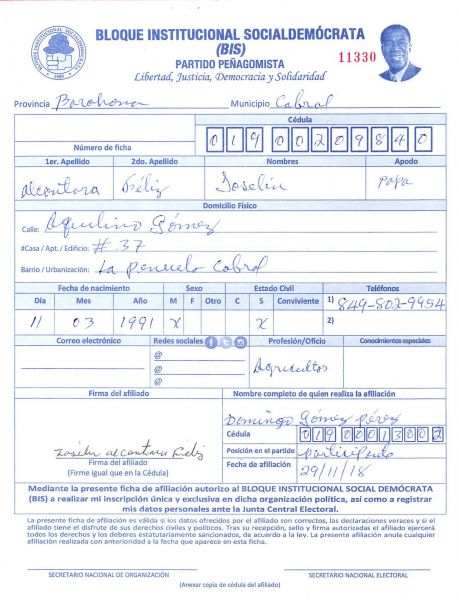 BLOQUE INSTITUCIONAL SOCIALDEMÓCRATA
(BIS)
PARTIDO PEÑAGOMISTA
11330
Libertad, Justicia, Democracia y Solidaridad
Provincia Barahona Municipio Cabral
Cédula
Número de ficha 01900209840
1er. Apellido 2do. Apellido Nombres Apodo
Alcantara Féliz Joselin papa
Domicilio Físico
Calle: Aquilino Gómez
#Casa / Apt. / Edificio: #.37
Barrio / Urbanización: La Cabral
Fecha de nacimiento Sexo Estado Civil Teléfonos
Día Mes Año M F Otro C S Conviviente 1) 849-802-9954
11 03 1991 X X 2)
Correo electrónico Redes sociales Profesión/Oficio Conocimientos especiales
@ Agricultor
@
@
Firma del afiliado Nombre completo de quien realiza la afiliación
Domingo Gómez Pérez
Cédula
01900013002
Joselin alcantara Feliz
Posición en el partido
Firma del afiliado
(Firme igual que en la Cédula)
Fecha de afiliación 29/11/18
Mediante la presente ficha de afiliación autorizo al BLOQUE INSTITUCIONAL SOCIAL DEMÓCRATA
(BIS) a realizar mi inscripción única y exclusiva en dicha organización política, así como a registrar
mis datos personales ante la Junta Central Electoral.
La presente ficha de afiliación es válida si los datos ofrecidos por el afiliado son correctos, las declaraciones veraces y si el
afiliado tiene el disfrute de sus derechos civiles y políticos. Tras su recepción, sello y firma autorizadas el afiliado ejercerá
todos los derechos y los deberes estatutariamente sancionados, de acuerdo a la ley. La presente afiliación anula cualquier
afiliación realizada con anterioridad a la fecha que aparece en esta ficha.
SECRETARIO NACIONAL DE ORGANIZACIÓN SECRETARIO NACIONAL ELECTORAL
(Anexar copia de cédula del afiliado)